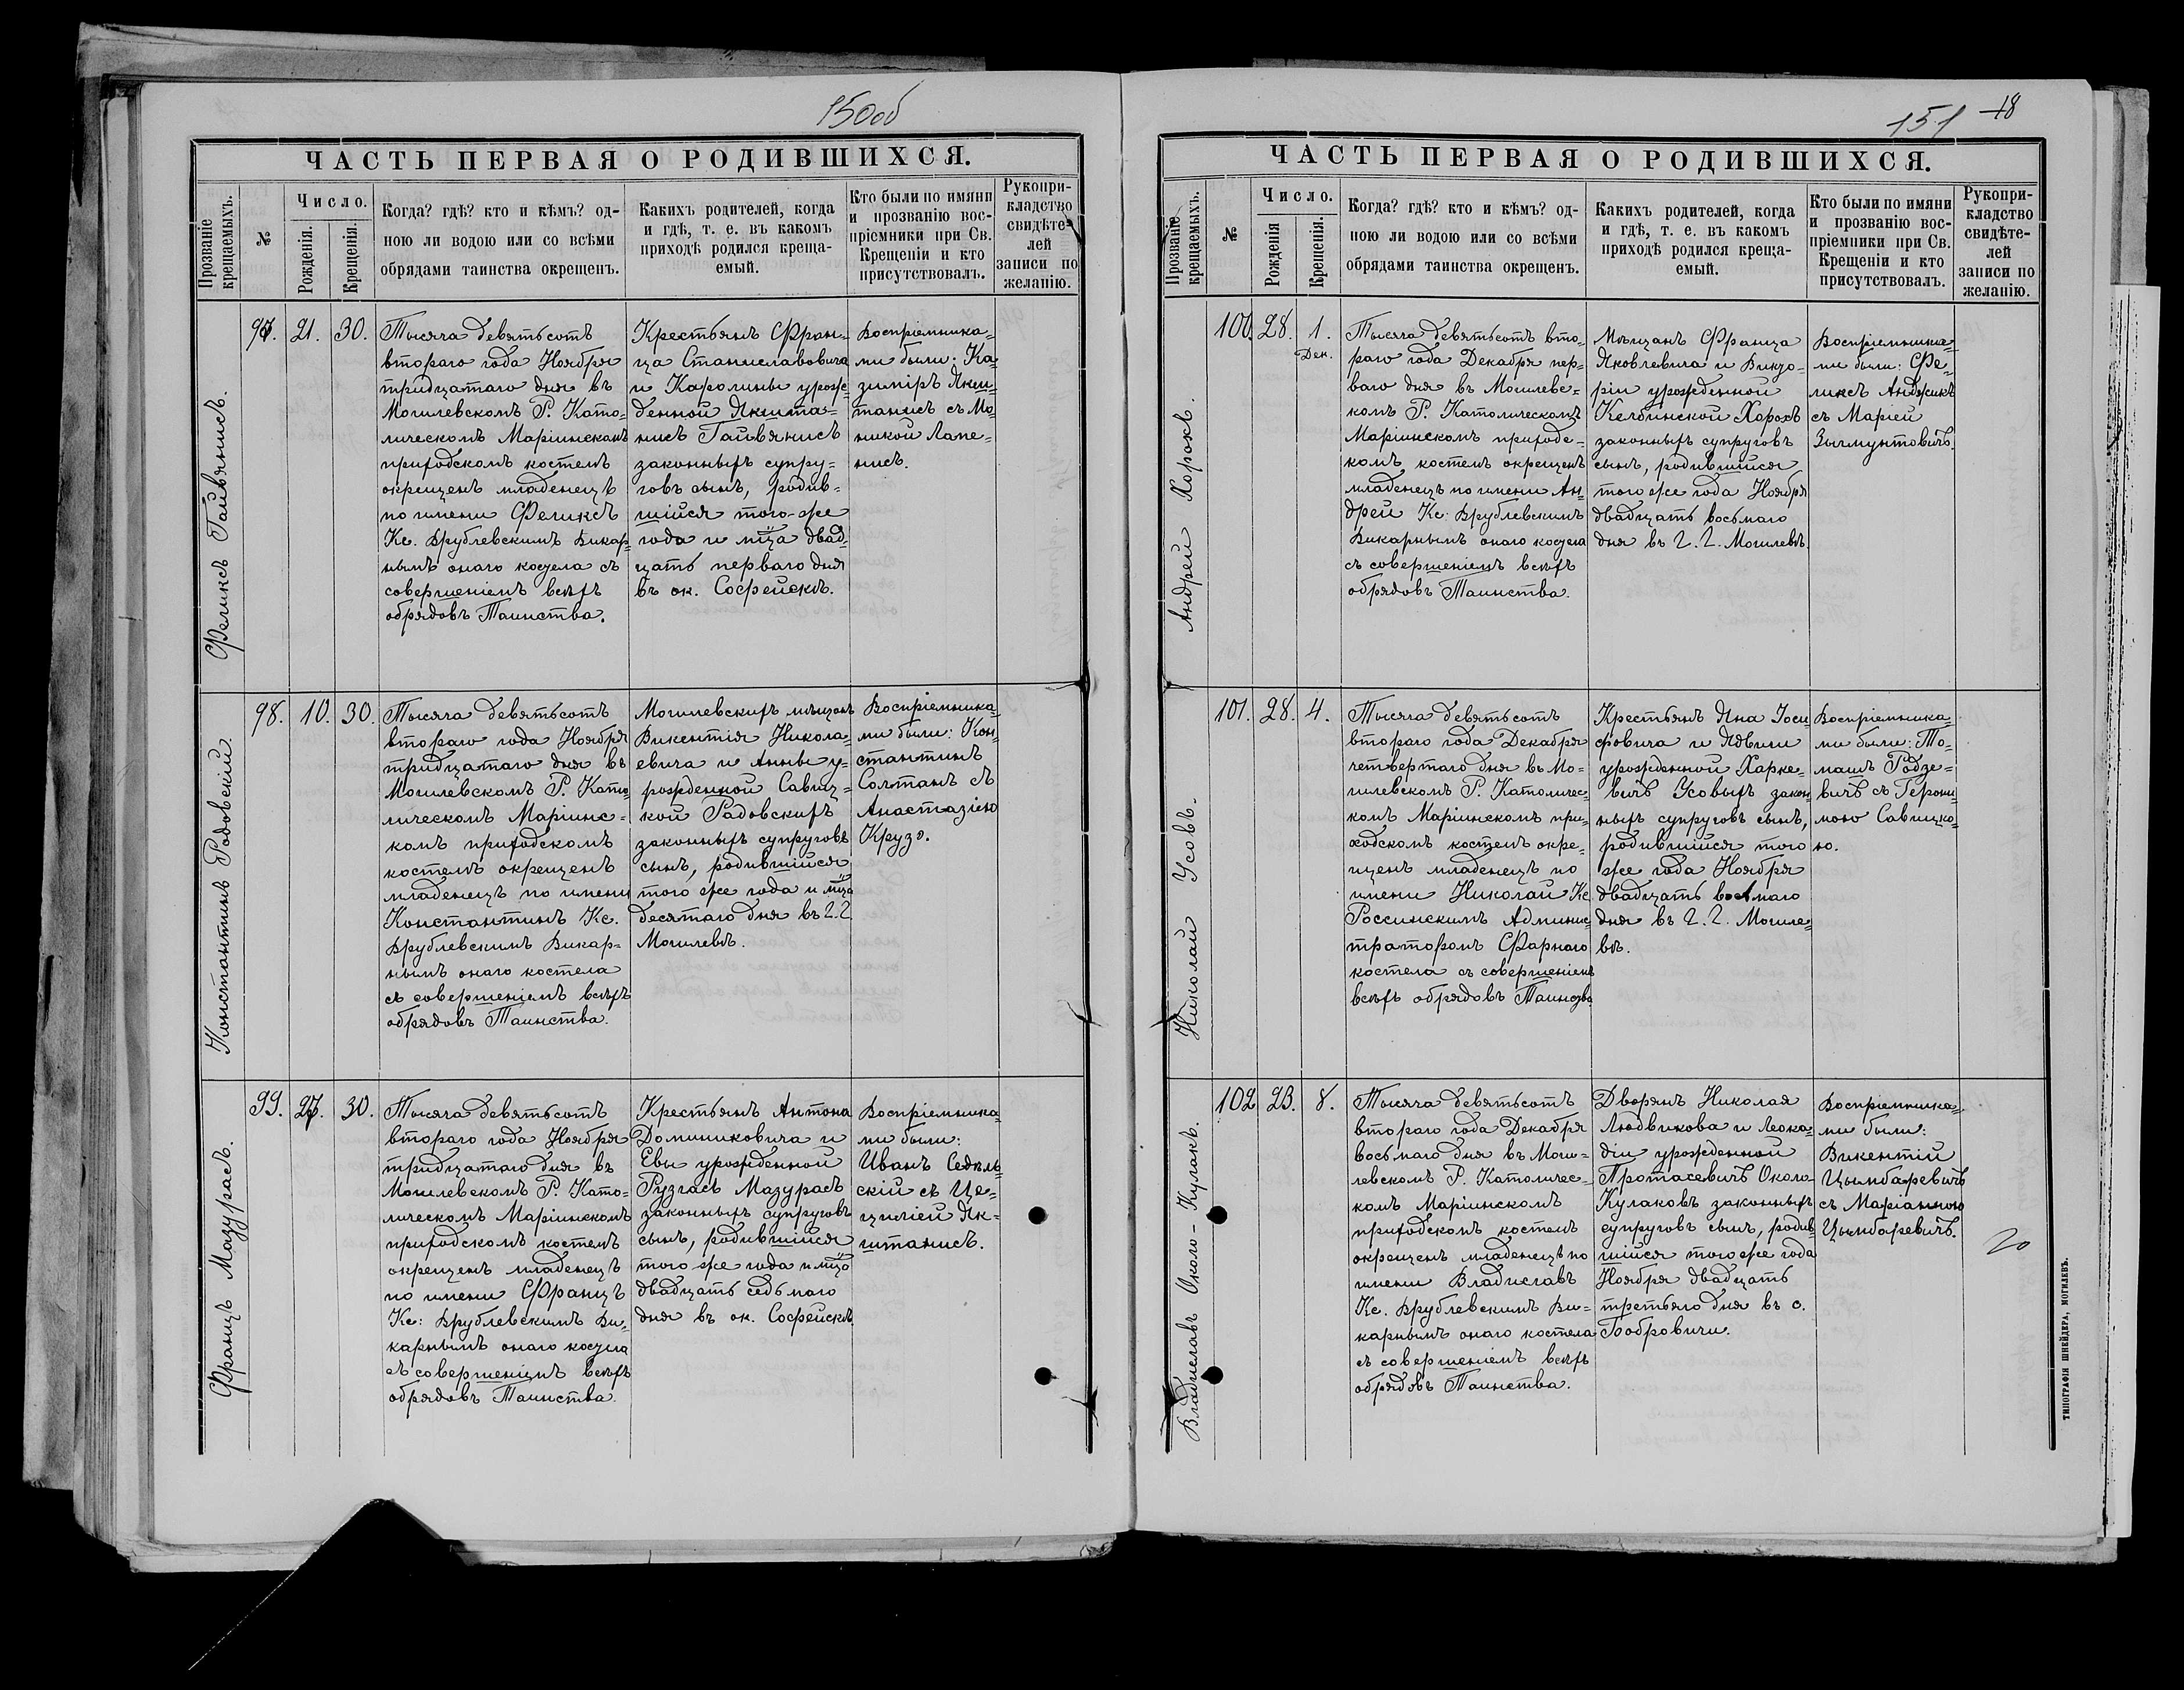 150об
ЧАСТЬ ПЕРВАЯ О РОДИВШИХСЯ.
Прозваніе крещаемыхъ.
№
Число.
Рожденія.
Крещенія.
Когда? гдѣ? кто и кѣмъ? од-
ною ли водою или со всѣми
обрядами таинства окрещенъ.
Какихъ родителей, когда
и гдѣ, т. е. въ какомъ
приходѣ родился креща-
емый.
Кто были по имяни
и прозванію вос-
пріемники при Св.
Крещеніи и кто
присутствовалъ.
Рукопри-
кладство
свидѣте-
лей
записи по
желанію.
Феликсъ Гайвянисъ.
97. 21. 30.
Тысяча девятьсотъ
втораго года Ноября
тридцатаго дня въ
Могилевскомъ Р. Като-
лическомъ Маріинскомъ
приходскомъ костелѣ
окрещенъ младенецъ
по имени Феликсъ
Кс. Врублевскимъ Викар-
нымъ онаго косцела съ
совершеніемъ всѣхъ
обрядовъ Таинства.
Крестьянъ Фран-
ца Станиславовича
и Каролины урож-
денной Якшта-
нисъ Гайвянисъ
законныхъ супру-
говъ сынъ, родив-
шійся того-же
года и мца двад-
цать перваго дня
въ ок. Софейскѣ.
Воспріемника-
ми были: Ка-
зимиръ Якш-
танисъ съ Мо-
никой Лапе-
нисъ.
Константинъ Радовскій.
98. 10. 30.
Тысяча девятьсотъ
втораго года Ноября
тридцатаго дня въ
Могилевскомъ Р. Като-
лическомъ Маріинс-
комъ приходскомъ
костелѣ окрещенъ
младенецъ по имени
Константинъ Кс.
Врублевскимъ Викар-
нымъ онаго костела
съ совершеніемъ всѣхъ
обрядовъ Таинства.
Могилевскихъ мѣщанъ
Викентія Никола-
евича и Анны у-
рожденной Савиц-
кой Радовскихъ
законныхъ супруговъ
сынъ, родившійся
того же года и мца
десятаго дня въ г. г.
Могилевѣ.
Воспріемника-
ми были: Кон-
стантинъ
Солтанъ съ
Анастазіею
Крузо.
Францъ Мазурасъ.
99. 27. 30.
Тысяча девятьсотъ
втораго года Ноября
тридцатаго дня въ
Могилевскомъ Р. Като-
лическомъ Маріинскомъ
приходскомъ костелѣ
окрещенъ младенецъ
по имени Францъ
Кс: Врублевскимъ Ви-
карнымъ онаго косцела
съ совершеніемъ всѣхъ
обрядовъ Таинства.
Крестьянъ Антона
Доминиковича и
Евы урожденной
Рузгасъ Мазурасъ
законныхъ супруговъ
сынъ, родившійся
того же года и мца
двадцать седьмаго
дня въ ок. Софейскѣ.
Воспріемника-
ми были:
Иванъ Седль-
скій съ Це-
циліей Як-
штанисъ.
151 18
ЧАСТЬ ПЕРВАЯ О РОДИВШИХСЯ.
Прозваніе крещаемыхъ.
№
Число.
Рожденія
Крещенія.
Когда? гдѣ? кто и кѣмъ? од-
ною ли водою или со всѣми
обрядами таинства окрещенъ.
Какихъ родителей, когда
и гдѣ, т. е. въ какомъ
приходѣ родился креща-
емый.
Кто были по имяни
и прозванію вос-
пріемники при Св.
Крещеніи и кто
присутствовалъ.
Рукопри-
кладство
свидѣте-
лей
записи по
желанію.
Андрей Хорохъ.
100. 28. 1.
Дек.
Тысяча девятьсотъ вто-
раго года Декабря пер-
ваго дня въ Могилевс-
комъ Р. Католическомъ
Маріинскомъ приходс-
комъ костелѣ окрещенъ
младенецъ по имени Ан-
дрей Кс: Врублевскимъ
Викарнымъ онаго косцела
съ совершеніемъ всѣхъ
обрядовъ Таинства.
Мѣщанъ Франца
Яковлевича и Викто-
ріи урожденной
Келбинской Хорохъ
законныхъ супруговъ
сынъ, родившійся
того же года Ноября
двадцать восьмаго
дня въ г. г. Могилевѣ.
Воспріемника-
ми были: Фе-
ликсъ Анджикъ
съ Маріей
Зыгмунтовичъ.
Николай Усовъ.
101. 28. 4.
Тысяча девятьсотъ
втораго года Декабря
четвертаго дня въ Мо-
гилевскомъ Р. Католичес-
комъ Маріинскомъ при-
ходскомъ костелѣ окре-
щенъ младенецъ по
имени Николай Кс
Россинскимъ Админис-
траторомъ Фарнаго
костела съ совершеніемъ
всѣхъ обрядовъ Таинства.
Крестьянъ Яна Іоси
фовича и Ядвиги
урожденной Харке-
вичъ Усовыхъ закон-
ныхъ супруговъ сынъ,
родившійся того
же года Ноября
двадцать восьмаго
дня въ г. г. Могиле-
вѣ.
Воспріемника-
ми были: То-
машъ Родзе-
вичъ съ Герони-
мою Савицко-
ю.
Владиславъ Около-Кулакъ.
102 23. 8.
Тысяча девятьсотъ
втораго года Декабря
восьмаго дня въ Моги-
левскомъ Р. Католичес-
комъ Маріинскомъ
приходскомъ костелѣ
окрещенъ младенецъ по
имени Владиславъ
Кс. Врублевскимъ Ви-
карнымъ онаго костела
съ совершеніемъ всѣхъ
обрядовъ Таинства.
Дворянъ Николая
Людвикова и Леока-
діи урожденной
Протасевичъ Около-
Кулаковъ законныхъ
супруговъ сынъ, родив-
шійся того же года
Ноября двадцать
третьяго дня въ о.
Бобровичи.
Воспріемника-
ми были:
Викентій
Цымбаревичъ
съ Маріанною
Цымбаревичъ.
20
ТИПОГРАФІЯ ШНЕЙДЕРА, МОГИЛЕВЪ.